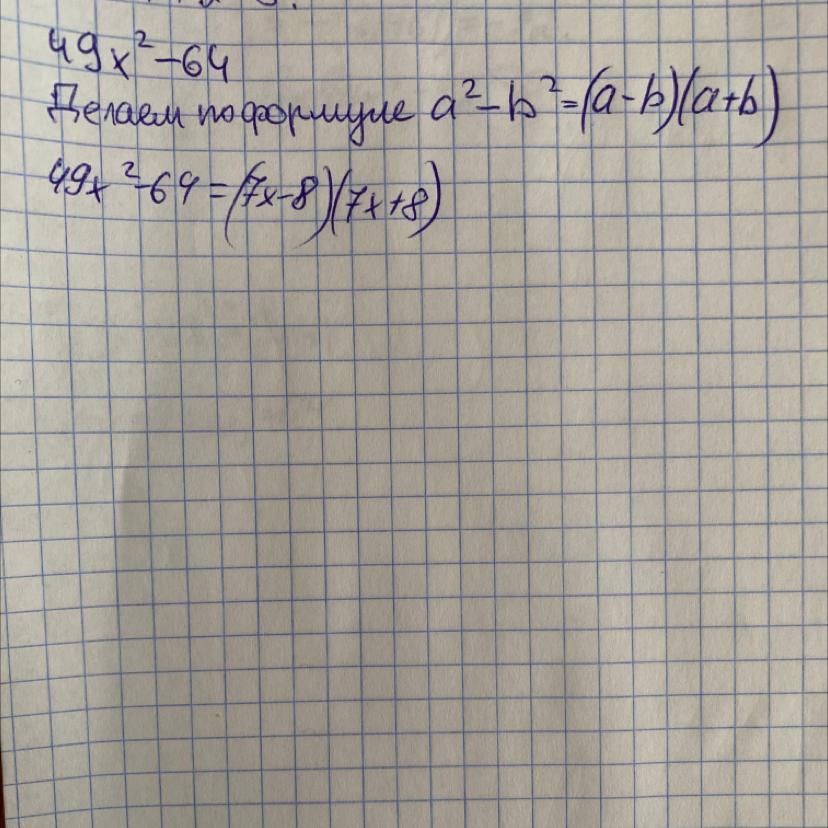 49x²-64
Делаем по формуле a²-b²=(a-b)(a+b)
49x²-64=(7x-8)(7x+8)